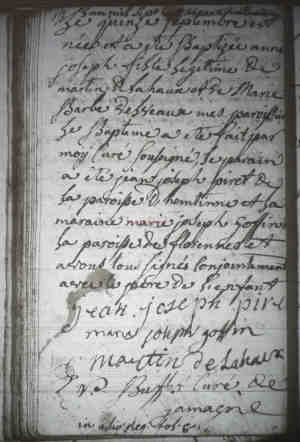 Le quinze septembre est
née et a été Baptisée anne
joseph fille Legitime de
martin de Lahaux et De Marie
Barbe mes paroissiens
Le Baptême a été fait par
moy Curé soussigné, Le parain
a été jean joseph piret de
la paroisse D hemtinne et La
maraine marie joseph
La paroisse de florennes et
avons tous signés Conjointement
avec le père de L'enfant
jean joseph pire
marie joseph
Martin de Lahaux
Curé de
jamagne